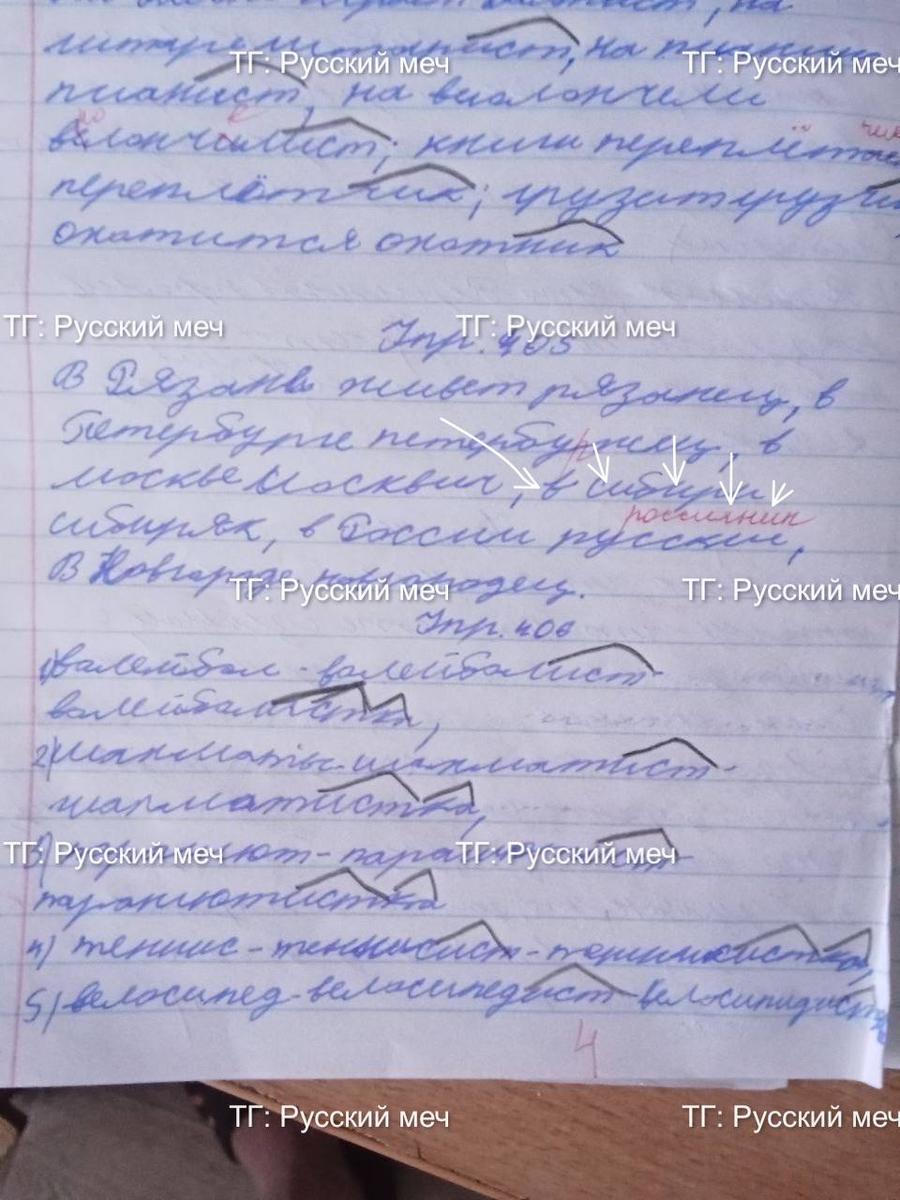 гитаре гитарист, на пианино
ТГ: Русский меч ТГ: Русский меч
пианист, на виолончели
велончилист; книги переплётчик
переплётчик; грузит грузчик
охотится охотник
ТГ: Русский меч ТГ: Русский меч
Упр. 405
В Рязань живет рязанец, в
Петербурге петербужец, в
москве москвич, в сибири
россиянин
сибиряк, в России русский,
В Новгороде новгородец.
ТГ: Русский меч ТГ: Русский меч
Упр. 406
1) валейбол - валейболист
валейболистка,
2) шахматы - шахматист -
шахматистка,
ТГ: Русский меч ТГ: Русский меч
парашютистка
4) теннис - теннисист - теннисистка,
5) велосипед - велосипедист - велосипидистка
4
ТГ: Русский меч ТГ: Русский меч